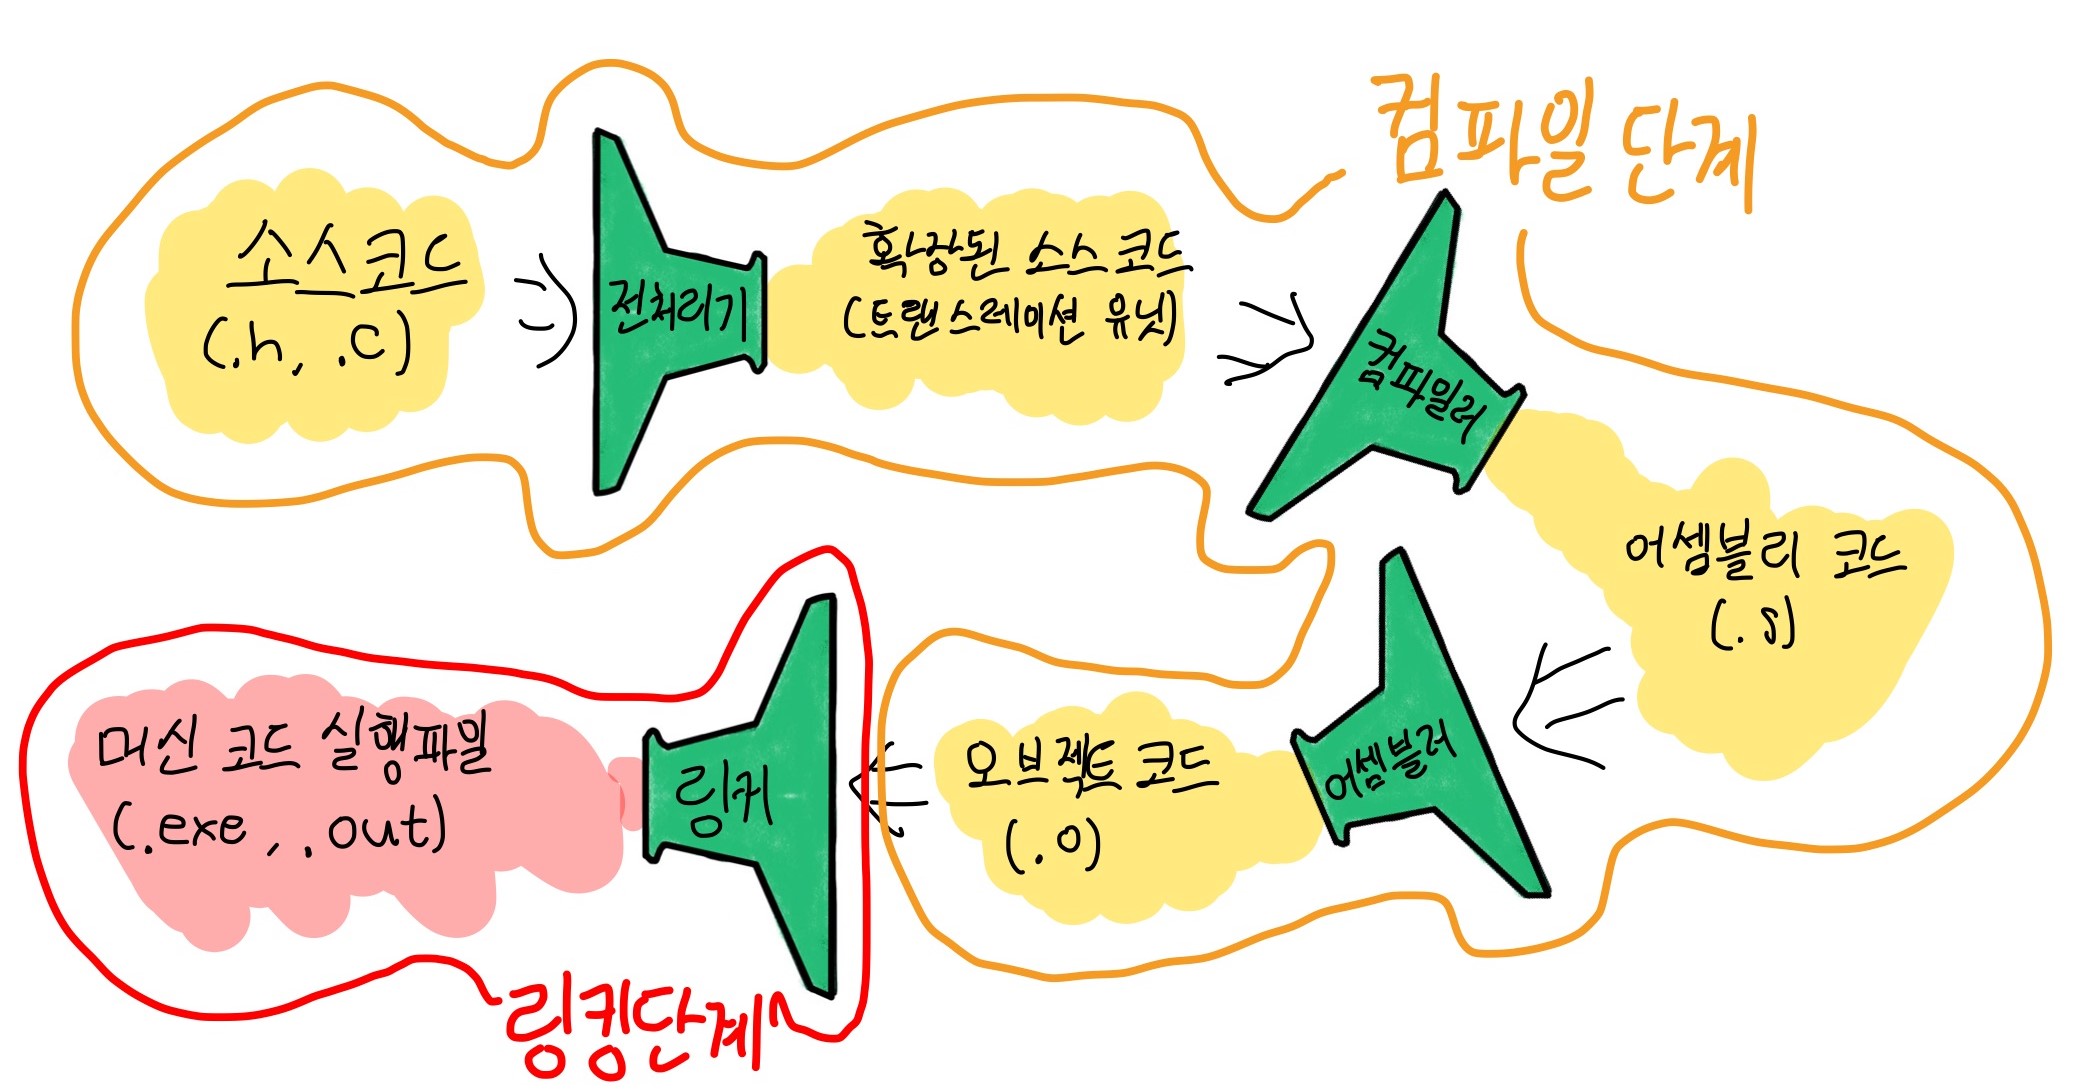 컴파일 단계
소스코드
(.h, .c)
전처리기
확장된 소스 코드
(트랜스레이션 유닛)
컴파일러
어셈블리 코드
(.s)
어셈블러
오브젝트 코드
(.o)
링커
머신 코드 실행파일
(.exe, .out)
링킹단계